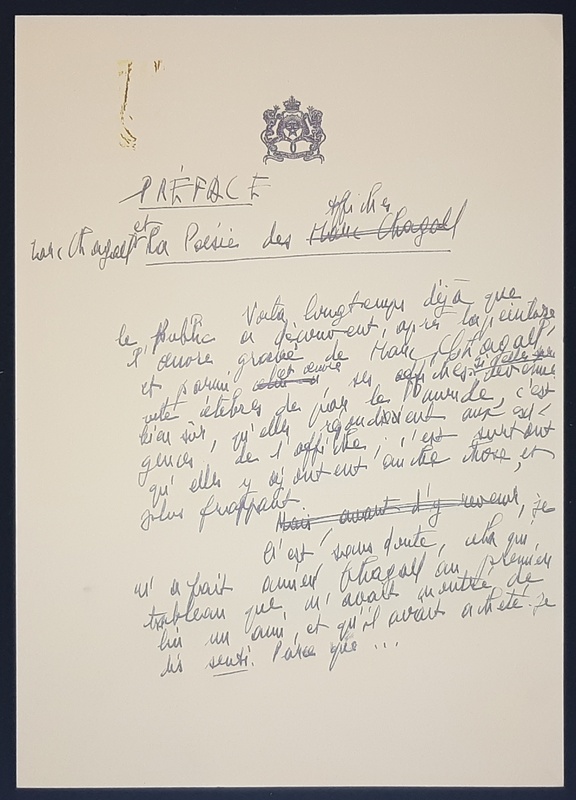 PRÉFACE
Affiches
Marc Chagall et La Poésie des Marc Chagall
Voilà longtemps déjà que
le Public a découvert, après la peinture
l'œuvre gravé de Marc Chagall,
et parmi cet œuvre, ses affiches. Si elles sont
célèbres de par le Monde, c'est
bien sûr, qu'elles répondissent aux exi-
gences de l'affiche; c'est surtout
qu'elles y ajoutent autre chose, et
plus frappant.
Mais, avant d'y revenir, je
C'est, sans doute, cela qui
m'a fait aimer Chagall au premier
tableau que m'avait montré de
lui un ami, et qu'il avait acheté. Je
dis senti. Parce que ...